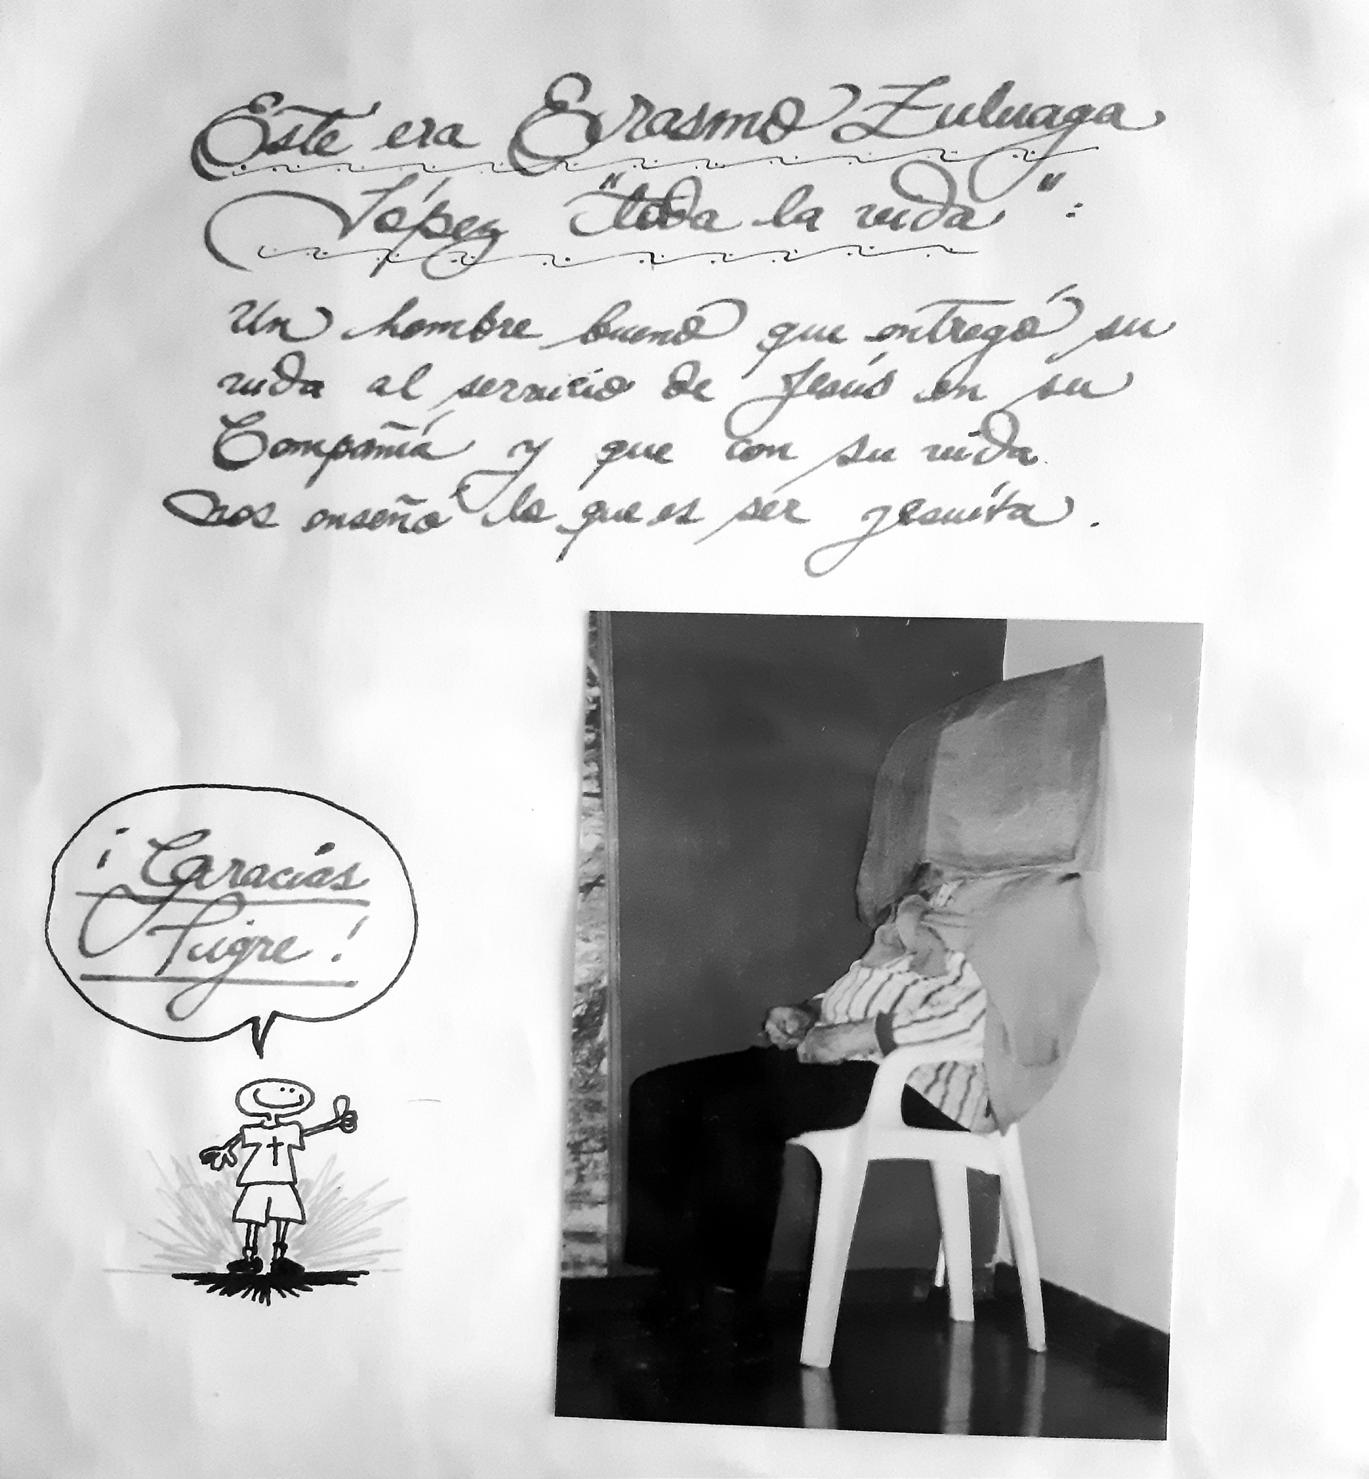 Este era Erasmo Zuluaga
López "toda la vida":
Un hombre bueno que entregó su
vida al servicio de Jesús en su
Compañía y que con su vida
nos enseñó lo que es ser jesuita.
¡Gracias
Tigre!